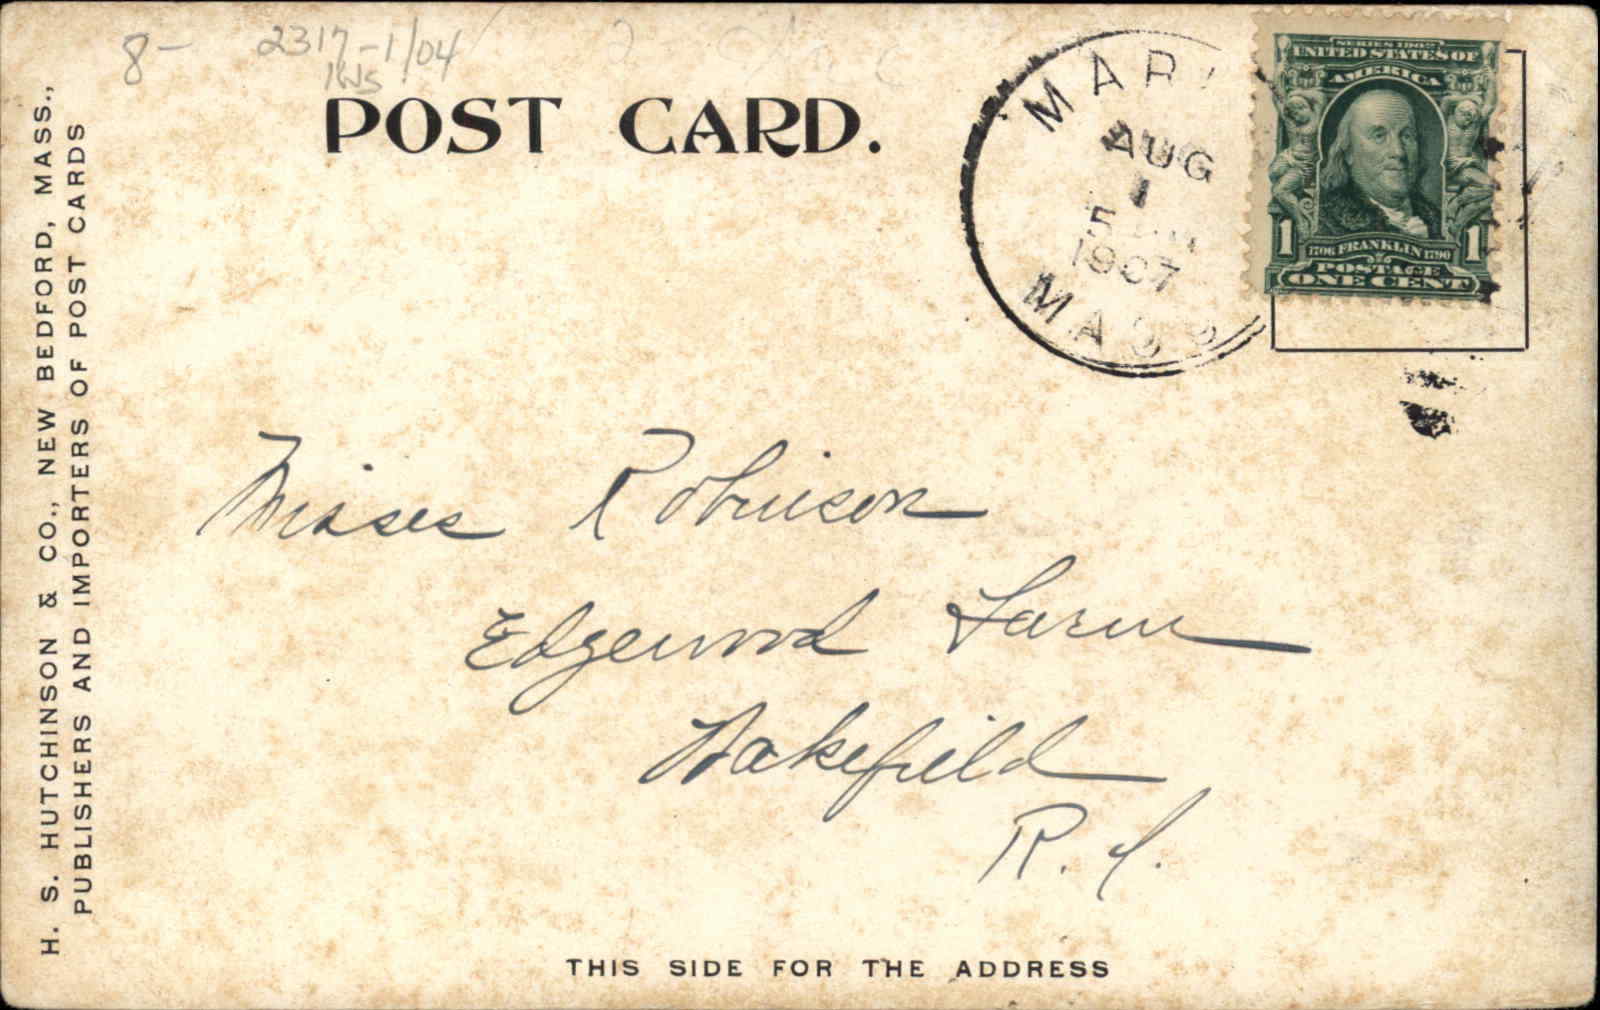 8-
2317-1/04
POST CARD.
AUG
1
5
1907
MASS
SERIES 1902
UNITED STATES OF
AMERICA
1 1706 FRANKLIN 1790 1
POSTAGE
ONE CENT
H. S. HUTCHINSON & CO., NEW BEDFORD, MASS.,
PUBLISHERS AND IMPORTERS OF POST CARDS
Misses Robinson
Edgewood Farm
Wakefield
R. I.
THIS SIDE FOR THE ADDRESS